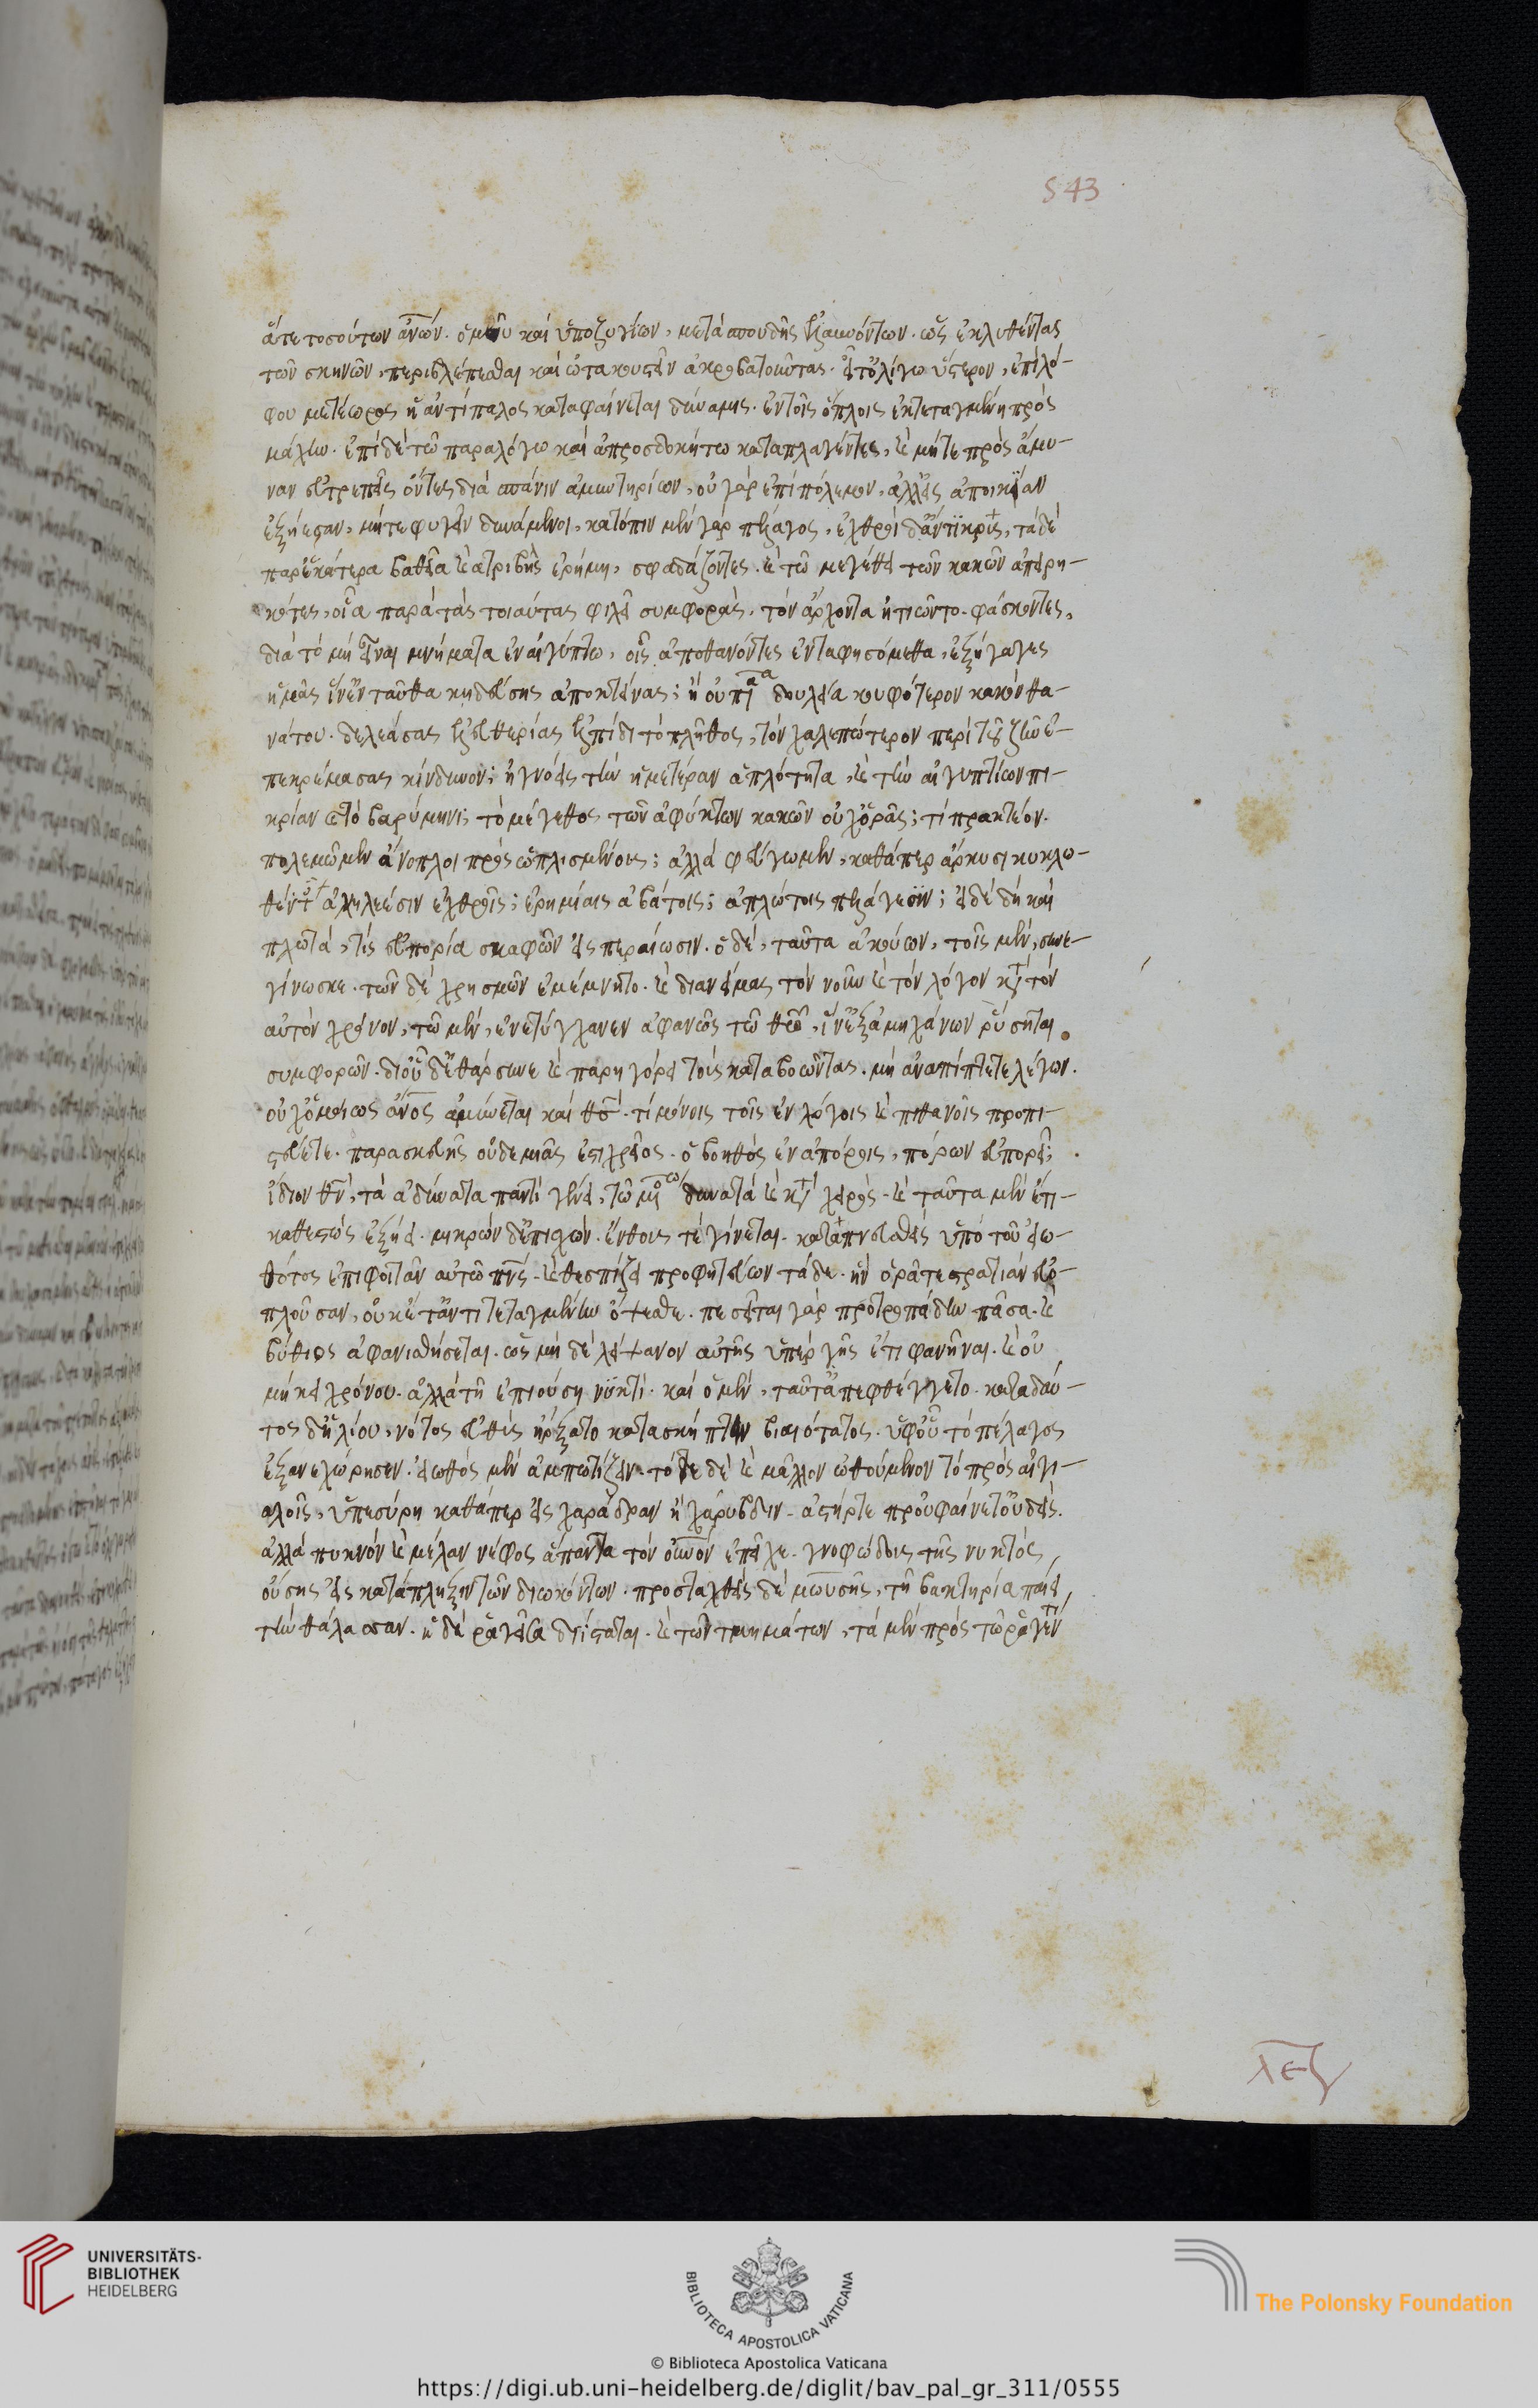 543
ἅτε τοσούτων ἀνων. ὁμοῦ καὶ ὑποζυγίων, μετὰ σπουδῆς ἐλαυνόντων. ὡς ἐκλυθέντας
τῶν σκηνῶν, περιβλέπεσθαι καὶ ὠτακουστεῖν ἀκροβατοῦντας. εἶτ' ὀλίγω ὕστερον, ἐπὶ λό-
φου μετέωρος ἡ ἀντίπαλος καταφαίνεται δύναμις. ἐν τοῖς ὅπλοις ἐκτεταγμένη πρὸς
μάχην. ἐπὶ δὲ τῶ παραλόγω καὶ ἀπροσδοκήτω καταπλαγέντες, καὶ μήτε πρὸς ἄμυ-
ναν εὐτρεπεῖς ὄντες διὰ σπάνιν ἀμυντηρίων, οὐ γὰρ ἐπὶ πόλεμον, ἀλλ' εἰς ἀποικίαν
ἐξῄεσαν, μήτε φυγεῖν δυνάμενοι, κατόπιν μὲν γὰρ πέλαγος, ἐχθροὶ δ' ἄντϊκρις, τὰ δὲ
παρ' ἑκάτερα βαθεῖα καὶ ἀτριβὴς ἐρήμη, σφαδάζοντες. καὶ τῶ μεγέθει τῶν κακῶν ἀπειρη-
κότες, οἷα παρὰ τὰς τοιαύτας φιλεῖ συμφορὰς, τὸν ἄρχοντα ἠτιῶντο. φάσκοντες,
διὰ τὸ μὴ εἶναι μνήματα ἐν αἰγύπτω, οἷς ἀποθανόντες ἐνταφησόμεθα, ἐξήγαγες
ἡμᾶς ἵν' ἐνταῦθα κηδεύσης ἀποκτείνας; ἢ οὐ πᾶσα δουλεία κουφότερον κακὸν θα-
νάτου. δελεάσας ἐλευθερίας ἐλπίδι τὸ πλῆθος, τὸν χαλεπώτερον περὶ τοῦ ζῆν ἐ-
πεκρέμασας κίνδυνον; ἠγνόεις τὴν ἡμετέραν ἁπλότητα, καὶ τὴν αἰγυπτίων πι-
κρίαν καὶ τὸ βαρύμηνι; τὸ μέγεθος τῶν ἀφύκτων κακῶν οὐχ' ὁρᾶς; τί πρακτέον.
πολεμῶμεν ἄνοπλοι πρὸς ὡπλισμένους; ἀλλὰ φεύγωμεν, καθάπερ ἄρκυσι κυκλω-
θέντες ἀνηλεέσιν ἐχθροῖς; ἐρημίαις ἀβάτοις; ἀπλώτοις πελάγεσϊν; εἰ δὲ δὴ καὶ
πλωτὰ, τίς εὐπορία σκαφῶν εἰς περαίωσιν. ὁ δὲ, ταῦτα ἀκούων, τοῖς μὲν, συνε-
γίνωσκε. τῶν δὲ χρησμῶν ἐμέμνητο. καὶ διανείμας τὸν νοῦν καὶ τὸν λόγον κατὰ τὸν
αὐτὸν χρόνον, τῶ μὲν, ἐνετύγχανεν ἀφανῶς τῶ θεῶ, ἵν' ἐξ ἀμηχάνων ῥύσηται
συμφορῶν. δι' οὗ δ' ἐθάρσυνε καὶ παρηγόρει τοὺς καταβοῶντας. μὴ ἀναπίπτετε λέγων.
οὐχ' ὁμοίως ἄνος ἀμύνεται καὶ θς. τί μόνοις τοῖς εὐλόγοις καὶ πιθανοῖς προπι-
στεύετε. παρασκευῆς οὐδεμιᾶς ἐστι χρεῖος. ὁ βοηθὸς ἐν ἀπόροις, πόρων εὐπορεῖ;
ἴδιον θῦ, τὰ ἀδύνατα παντὶ γενεῖ, τῶ μόνω δυνατὰ καὶ κατὰ χειρός. καὶ ταῦτα μὲν ἔτι
καθεστὼς ἐξῄει. μικρὸν δ' ἐπισχὼν. ἔνθους τὲ γίνεται. καταπνευσθεὶς ὑπὸ τοῦ εἰω-
θότος ἐπιφοιτᾶν αὐτῶ πνς. καὶ θεσπίζει προφητεύων τάδε. ἣν ὁρᾶτε στρατιὰν εὐο-
πλοῦσαν, οὐκέτ' ἀντιτεταγμένην ὄψεσθε. πεσεῖται γὰρ προτροπάδην πᾶσα. καὶ
βύθιος ἀφανισθήσεται. ὡς μηδὲ λείψανον αὐτῆς ὑπὲρ γῆς ἔτι φανῆναι. καὶ οὐ
μήκει χρόνου. ἀλλὰ τῇ ἐπιούσῃ νϋκτί. καὶ ὁ μὲν, ταῦτ' ἀπεφθέγγετο. καταδύν-
τος δ' ἡλίου, νότος εὐθὺς ἤρξατο κατασκήπτειν βιαιότατος. ὑφ' οὗ τὸ πέλαγος
ἐξανεχώρησεν. εἰωθὸς μὲν ἀμπωτίζειν. τότε δὲ καὶ μᾶλλον ὠθούμενον τὸ πρὸς αἰγι-
αλοῖς, ὑπεσύρη καθάπερ εἰς χαράδραν ἢ χάρυβδιν. ἀστήρτε προὐφαίνετ' οὐδεὶς.
ἀλλὰ πυκνὸν καὶ μέλαν νέφος ἅπαντα τὸν οὐνον ἐπεῖχε. γνοφώδους τῆς νυκτὸς
οὔσης εἰς κατάπληξιν τῶν διωκόντων. προσταχθεὶς δὲ μωυσῆς, τῇ βακτηρία παίει
τὴν θάλασσαν. ἡ δὲ ῥαγεῖσα διΐσταται. καὶ τῶν τμημάτων, τὰ μὲν πρὸς τῶ ῥαγέντι
UNIVERSITÄTS-
BIBLIOTHEK
HEIDELBERG
BIBLIOTECA APOSTOLICA VATICANA
The Polonsky Foundation
© Biblioteca Apostolica Vaticana
https://digi.ub.uni-heidelberg.de/diglit/bav_pal_gr_311/0555